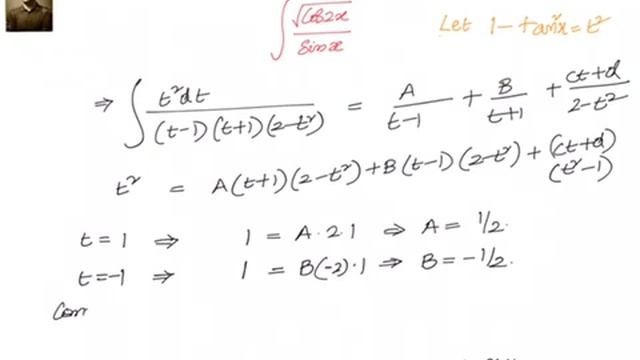 ∫ √Cos2x / Sinx
Let 1 - tan²x = t²
⇒ ∫ t²dt / (t-1)(t+1)(2-t²) = A/(t-1) + B/(t+1) + (ct+d)/(2-t²)
t² = A(t+1)(2-t²)+B(t-1)(2-t²)+(ct+d)(t²-1)
t=1 ⇒ 1 = A·2·1 ⇒ A = 1/2.
t=-1 ⇒ 1 = B(-2)·1 ⇒ B = -1/2.